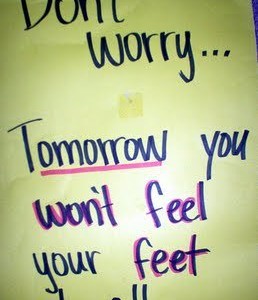 Don't
worry...
Tomorrow you
won't feel
your feet